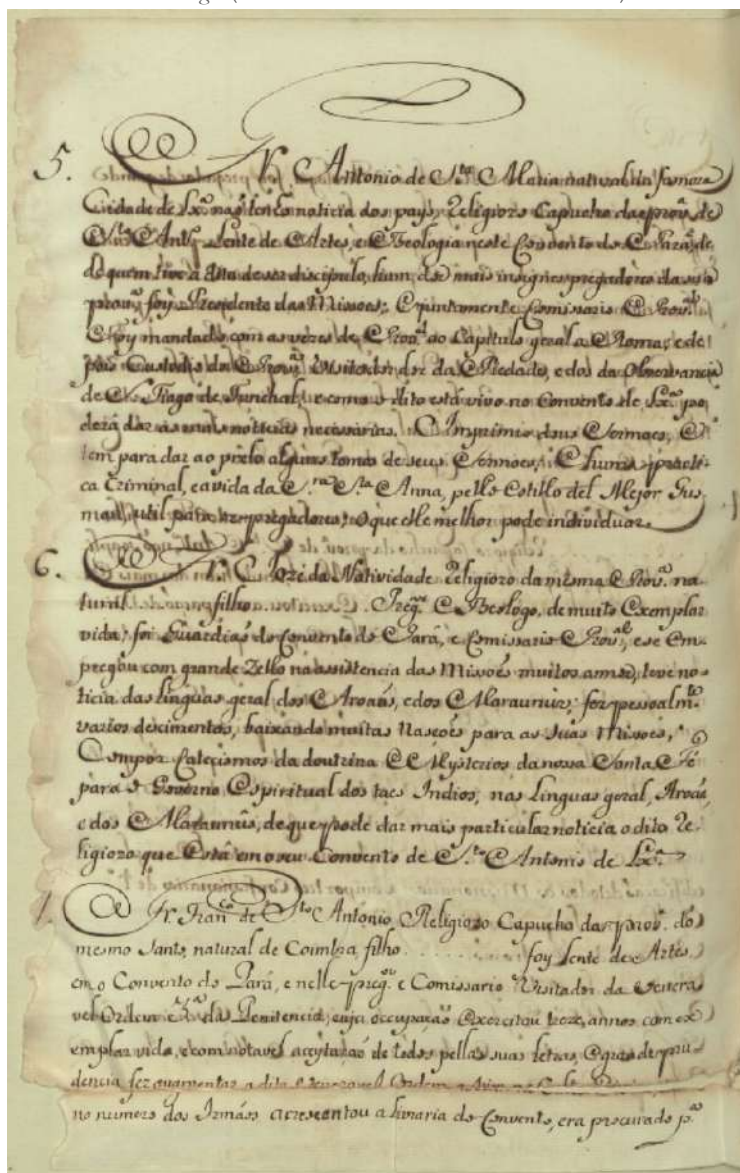 5. Fr. Antonio de S.ta Maria natural da famoza
Cidade de Lx.ª não tenho noticia dos pays, Religiozo Capucho da prov.ª de
S.to Ant.º Lente de Artes, e Theologia neste Convento do Pará, de
de quem tive a dita de ser discipulo, hum dos mais insignes pregadores da sua
prov.ª foy Prezidente das Missoes; e juntamente Comissario Prov.al
e foy mandado com as vezes de Prov.al ao Capitulo geral a Roma, e de
pois Custodio da Prov.ª Vizitador da da Piedade, e dos da Observancia
de S. Tiago de Funchal, e como o dito está vivo no Convento de Lx.ª po
derá dar as mais noticias necessarias. Imprimio dous Sermoes, e
tem para dar ao prelo alguns tomos de seus Sermoes, e huma practi-
ca Criminal, e a vida da S.ra S.ta Anna, pello Estillo del Mejor Gus
man, util para os pregadores, o que elle melhor pode individuar.
6. Fr. Joze da Natividade Religiozo da mesma Prov.ª na
tural ..... filho ..... Preg.or e Theologo, de muito Exemplar
vida, foi Guardião do Convento do Pará, e Comissario Prov.al, e se Em-
pregou com grande Zello na assistencia das Missoes muitos annos, teve no-
ticia das linguas geral dos Aroaãs, e dos Maraunuz; fez pessoalm.te
varios descimentos, baixando muitas Nascoēs para as suas Missoēs,
Compoz Catecismos da doutrina e Mysterios da nossa Santa Fé
para o Governo Espiritual dos taes Indios, nas Linguas geral, Aroaã,
e dos Maraunûs, de que pode dar mais particular noticia o dito Re-
ligiozo que Está em o seu Convento de S.to Antonio de Lx.ª
1. Fr. Fran.co de S.to António Religioso Capucho da prov.ª do
mesmo Santo, natural de Coimbra, filho .......... foy Lente de Artes
em o Convento do Pará, e nelle preg.or e Comissario Visitador da Venera
vel Ordem 3.ª da Penitencia, cuja occupação Exercitou treze annos com ex
emplar vida, e com notavel aceytação de todos pellas suas letras, e grande pru-
dencia fez augmentar a dita Veneravel Ordem
no numero dos Irmãos acrescentou a livraria do Convento, era procurado p.ª